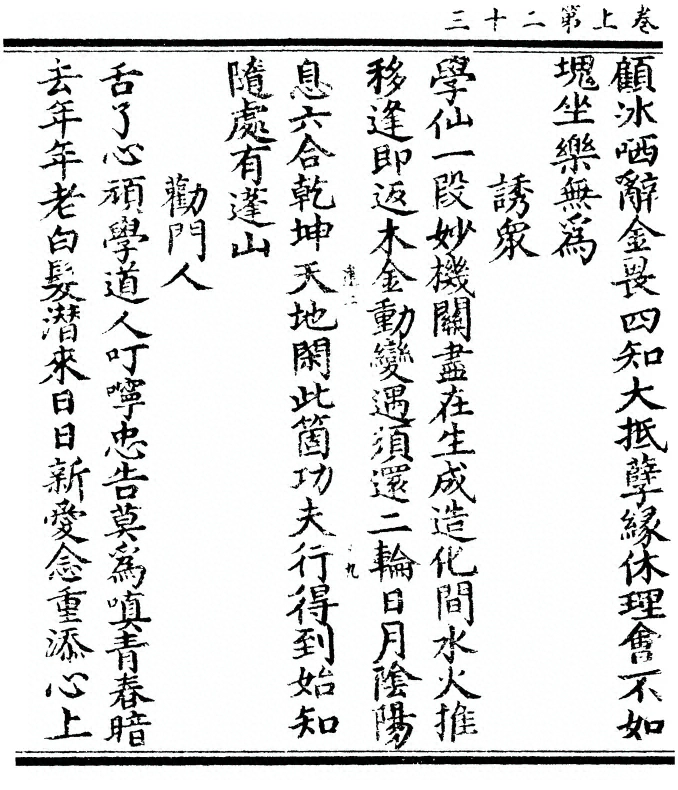 卷上第二十三
顧冰哂辭金畏四知大抵孽緣休理會不如
塊坐樂無爲
誘衆
學仙一段妙機關盡在生成造化間水火推
移逢即返木金動變遇須還二輪日月陰陽
息六合乾坤天地閑此箇功夫行得到始知
隨處有蓬山
勸門人
舌了心頑學道人叮嚀忠告莫爲嗔青春暗
去年年老白髮潛來日日新愛念重添心上